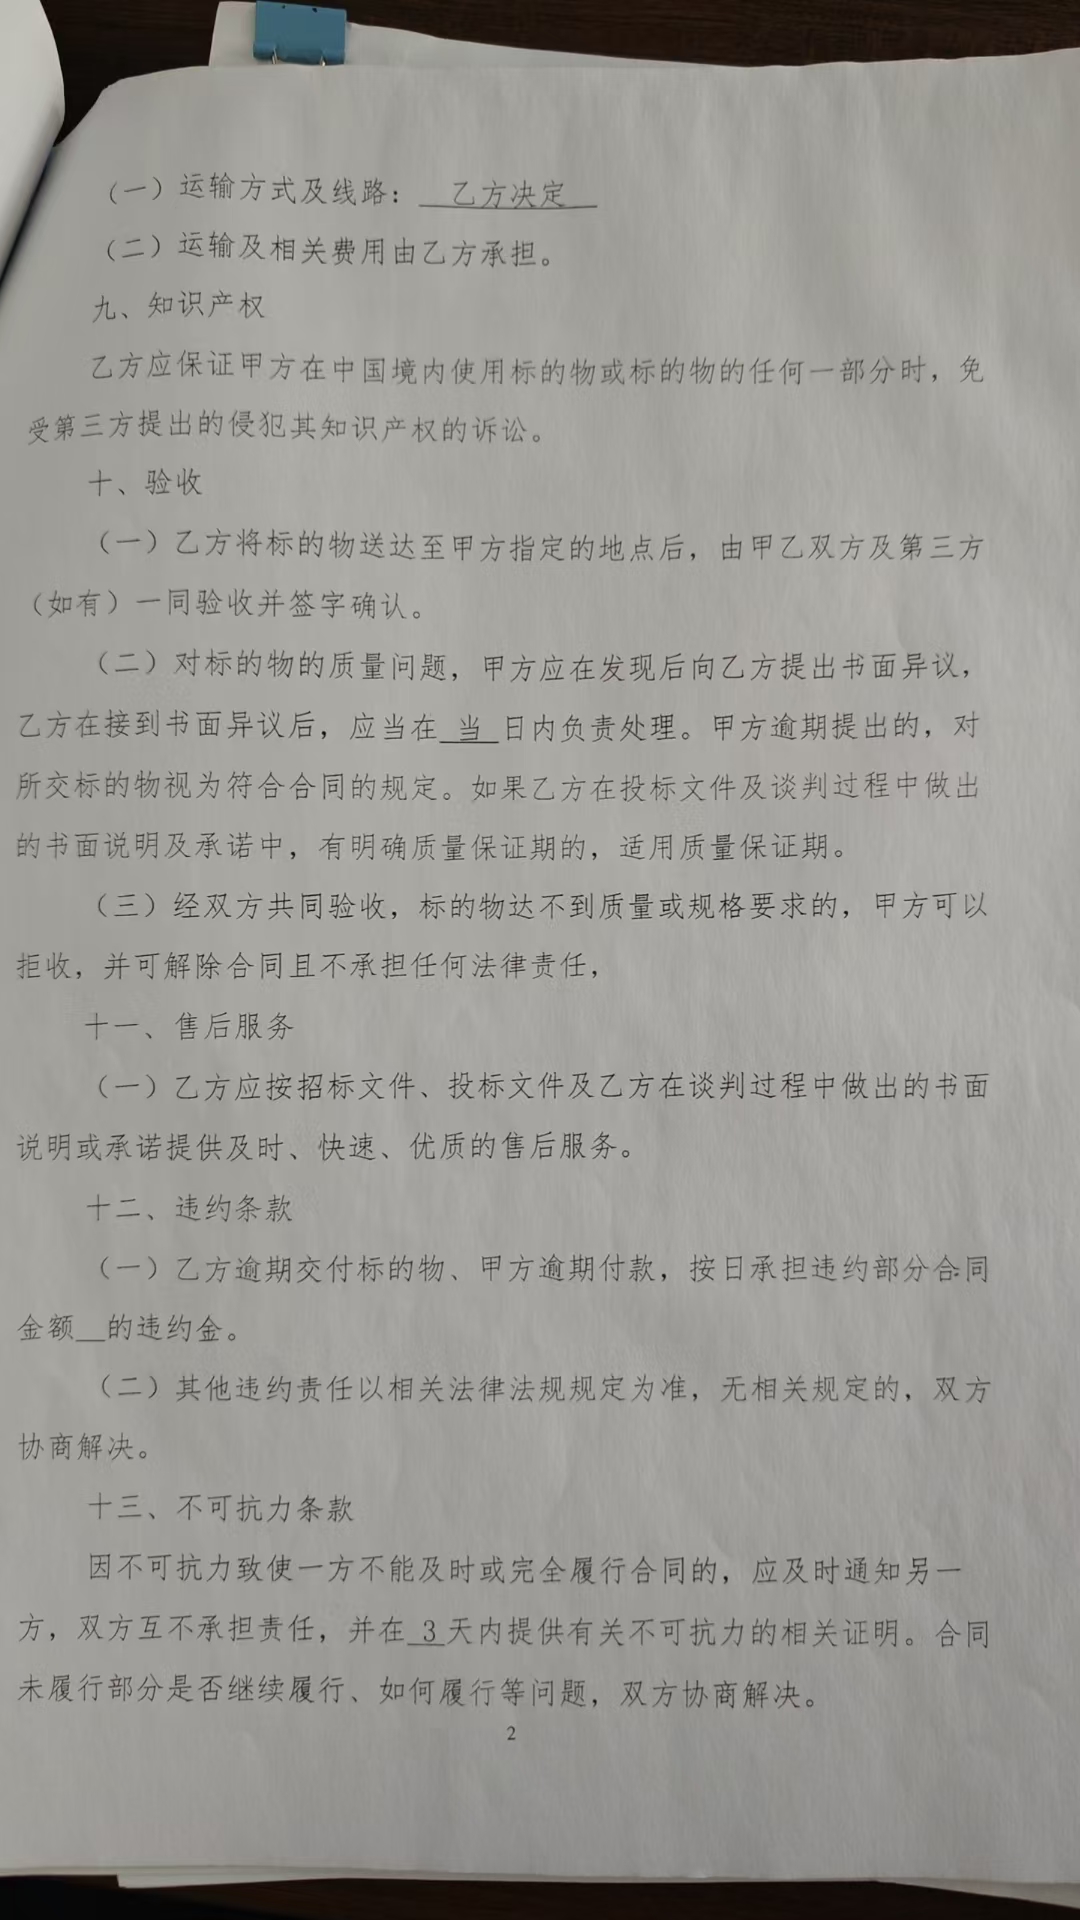 （一）运输方式及线路：　乙方决定　
（二）运输及相关费用由乙方承担。
九、知识产权
乙方应保证甲方在中国境内使用标的物或标的物的任何一部分时，免
受第三方提出的侵犯其知识产权的诉讼。
十、验收
（一）乙方将标的物送达至甲方指定的地点后，由甲乙双方及第三方
（如有）一同验收并签字确认。
（二）对标的物的质量问题，甲方应在发现后向乙方提出书面异议，
乙方在接到书面异议后，应当在 当 日内负责处理。甲方逾期提出的，对
所交标的物视为符合合同的规定。如果乙方在投标文件及谈判过程中做出
的书面说明及承诺中，有明确质量保证期的，适用质量保证期。
（三）经双方共同验收，标的物达不到质量或规格要求的，甲方可以
拒收，并可解除合同且不承担任何法律责任，
十一、售后服务
（一）乙方应按招标文件、投标文件及乙方在谈判过程中做出的书面
说明或承诺提供及时、快速、优质的售后服务。
十二、违约条款
（一）乙方逾期交付标的物、甲方逾期付款，按日承担违约部分合同
金额__的违约金。
（二）其他违约责任以相关法律法规规定为准，无相关规定的，双方
协商解决。
十三、不可抗力条款
因不可抗力致使一方不能及时或完全履行合同的，应及时通知另一
方，双方互不承担责任，并在 3 天内提供有关不可抗力的相关证明。合同
未履行部分是否继续履行、如何履行等问题，双方协商解决。
2